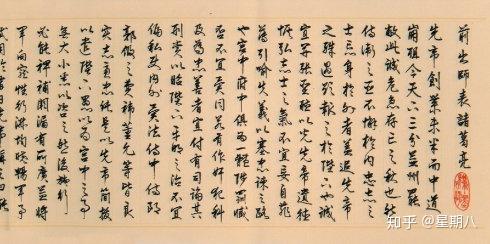 前出師表 諸葛亮
先帝創業未半而中道
崩殂今天下三分益州罷
敝此誠危急存亡之秋也然
侍衛之臣不懈於內忠志之
士忘身於外者蓋追先帝
之殊遇欲報之於陛下也誠
宜開張聖聽以光先帝遺德
恢弘志士之氣不宜妄自菲
薄引喻失義以塞忠諫之路
也宮中府中俱為一體陟罰臧
否不宜異同若有作奸犯科
及為忠善者宜付有司論其
刑賞以昭陛下平明之治不宜
偏私使內外異法侍中侍郎
郭攸之費禕董允等皆良
實志慮忠純是以先帝簡拔
以遺陛下愚以為宮中之事
事無大小悉以咨之然後施行
必能裨補闕漏有所廣益將
軍向寵性行淑均曉暢軍事
知乎 @星期八